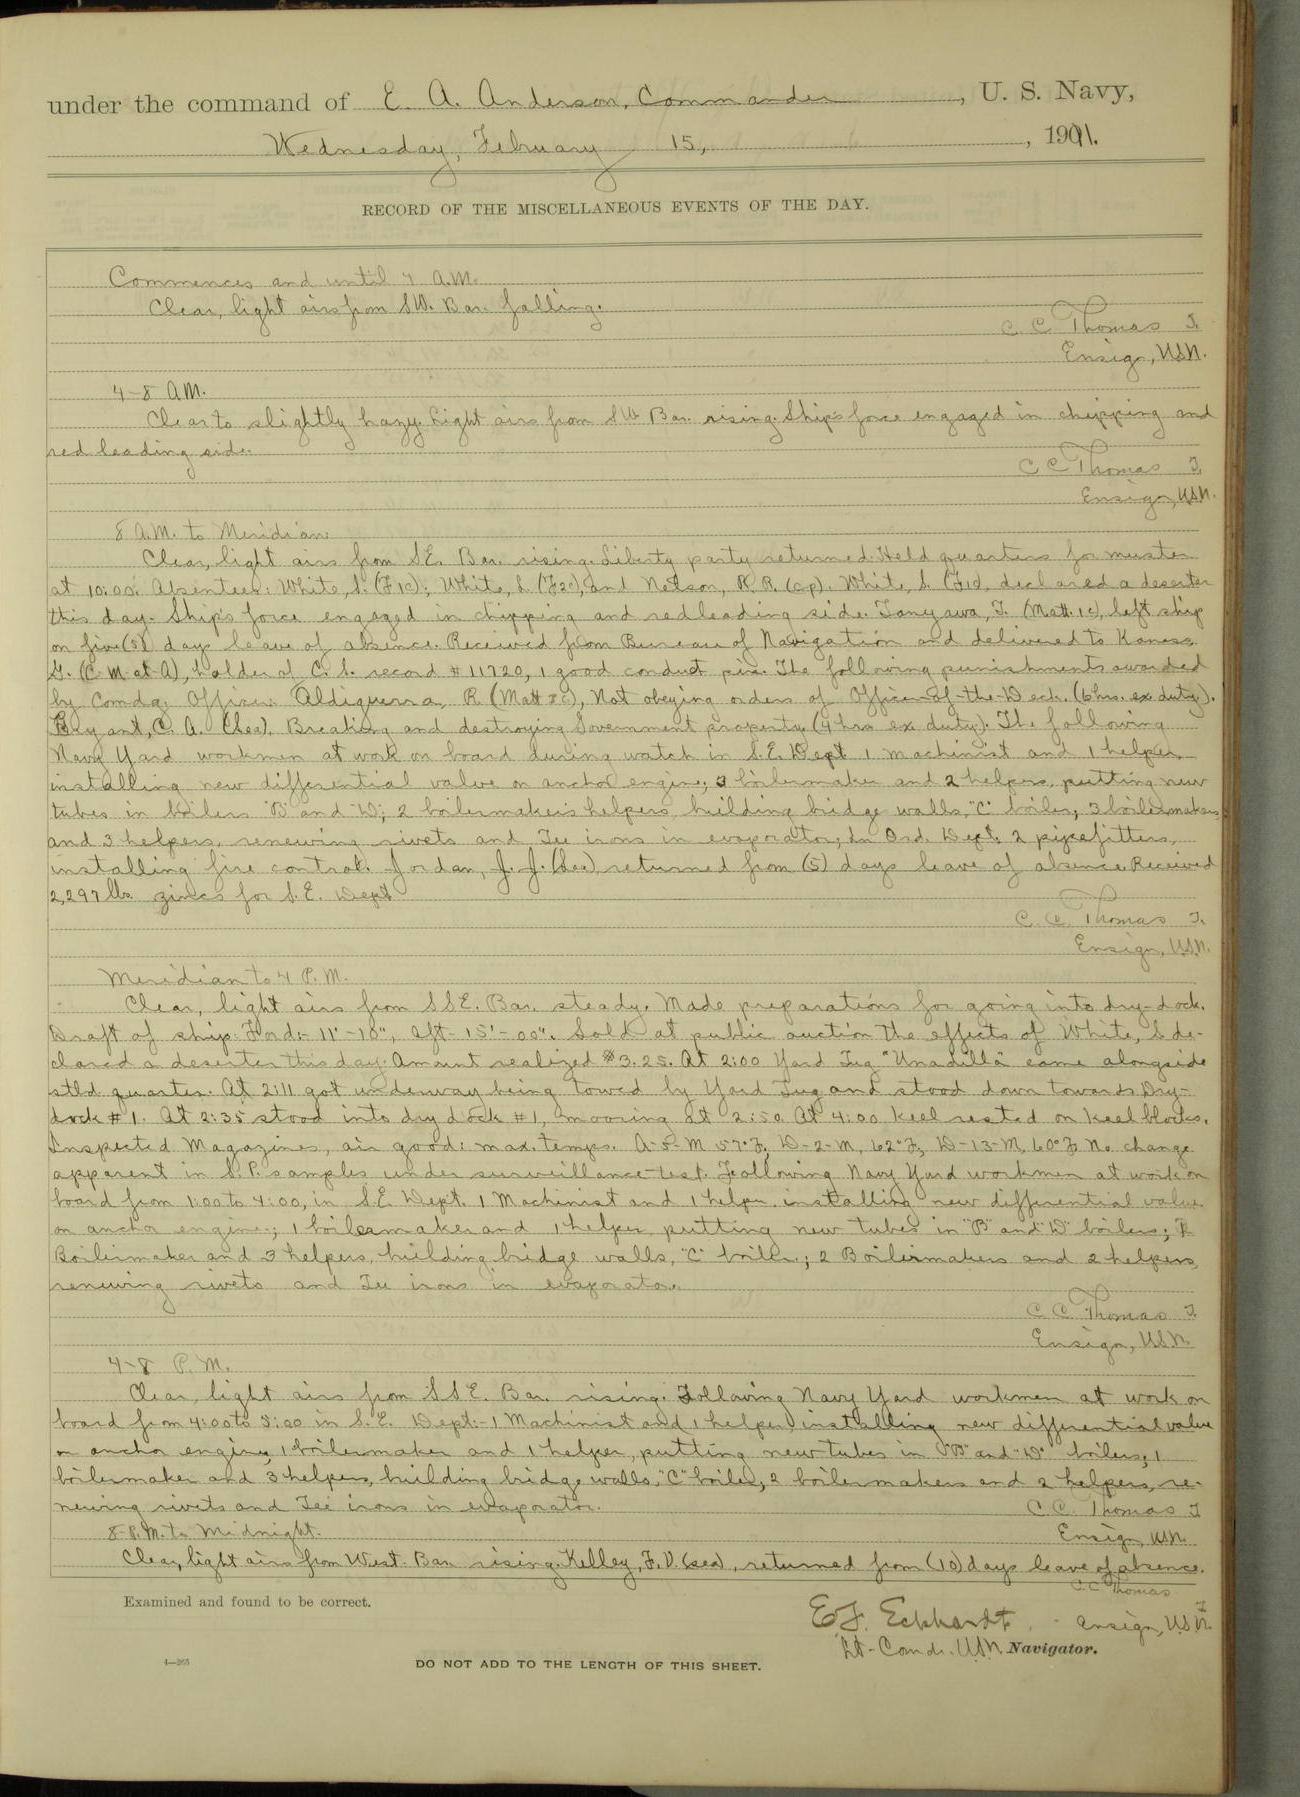 under the command of E. A. Anderson, Commander, U. S. Navy,
Wednesday, February 15, 1911.
RECORD OF THE MISCELLANEOUS EVENTS OF THE DAY.
Commences and until 4 A.M.
Clear, light airs from SW. Bar. falling.
C. C. Thomas
Ensign, USN.
4-8 AM.
Clear to slightly hazy. Light airs from SW. Bar. rising. Ship's force engaged in chipping and
red leading side.
C C Thomas
Ensign, USN.
8 A.M. to Meridian
Clear, light airs from SE. Bar. rising. Liberty party returned. Held quarters for muster
at 10:00. Absentees: White, S. (F1c); White, L. (F2c), and Nelson, R. R. (cp). White, S. (F1c), declared a deserter
this day. Ship's force engaged in chipping and redleading side. Tanyawa, T. (Matt. 1c), left ship
on five (5) days leave of absence. Received from Bureau of Navigation and delivered to
G. (C. M. at A), holder of C. S. record # 11720, 1 good conduct pin. The following punishments awarded
by Comdg. Officer: Aldiguerra, R (Matt 3c), Not obeying orders of Officer-of-the-Deck. (6 hrs. ex duty).
Bryant, C. A. (Sea). Breaking and destroying Government property (4 hrs ex duty). The following
Navy Yard workmen at work on board during watch in S.E. Dept 1 machinist and 1 helper
installing new differential valve on anchor engine; 3 boilermaker and 2 helpers, putting new
tubes in boilers "B" and "D"; 2 boilermaker's helpers building bridge walls, "C" boiler; 3 boilermakers
and 3 helpers, renewing rivets and Tee irons in evaporator; In Ord. Dept. 2 pipefitters,
installing fire control. Jordan, J. J. (Sea) returned from (5) days leave of absence. Received
2,297 lbs. zincs for S. E. Dept.
C. C. Thomas
Ensign, U.S.N.
Meridian to 4 P.M.
Clear, light airs from SSE. Bar. steady. Made preparations for going into dry-dock.
Draft of ship: Ford:- 11'-10", aft- 15'-00". Sold at public auction the effects of White, S. de-
clared a deserter this day. Amount realized $3.25. At 2:00 Yard Tug "Unadilla" came alongside
stbd quarter. At 2:11 got underway being towed by Yard Tug and stood down towards Dry-
dock #1. At 2:35 stood into dry dock #1, mooring at 2:50. At 4:00 keel rested on keel blocks.
Inspected Magazines, air good: max. temps. A-5-M 57°F, D-2-M, 62°F, D-13-M, 60°F. No change
apparent in S. P. samples under surveillance test. Following Navy Yard workmen at work on
board from 1:00 to 4:00, in S.E. Dept. 1 Machinist and 1 helper installing new differential valve
on anchor engine; 1 boilermaker and 1 helper putting new tubes in "B" and "D" boilers;
Boilermaker and 3 helpers, building bridge walls, "C" boiler; 2 Boilermakers and 2 helpers
renewing rivets and Tee irons in evaporator.
C C Thomas
Ensign, U.S.N.
4-8 P.M.
Clear, light airs from SSE. Bar. rising. Following Navy Yard workmen at work on
board from 4:00 to 5:00 in S.E. Dept:- 1 Machinist and 1 helper, installing new differential valve
on anchor engine; 1 boilermaker and 1 helper, putting new tubes in "B" and "D" boilers; 1
boilermaker and 3 helpers, building bridge walls, "C" boiler; 2 boilermakers and 2 helpers, re-
newing rivets and Tee irons in evaporator.
C C Thomas
8 P.M. to Midnight.
Ensign, USN
Clear, light airs from West. Bar. rising. Kelley, F. V. (sea), returned from (10) days leave of absence.
C C Thomas
Ensign, U.S.N.
Examined and found to be correct.
E.F. Eckhardt
Lt-Comdr. U.S.N. Navigator.
4—265
DO NOT ADD TO THE LENGTH OF THIS SHEET.